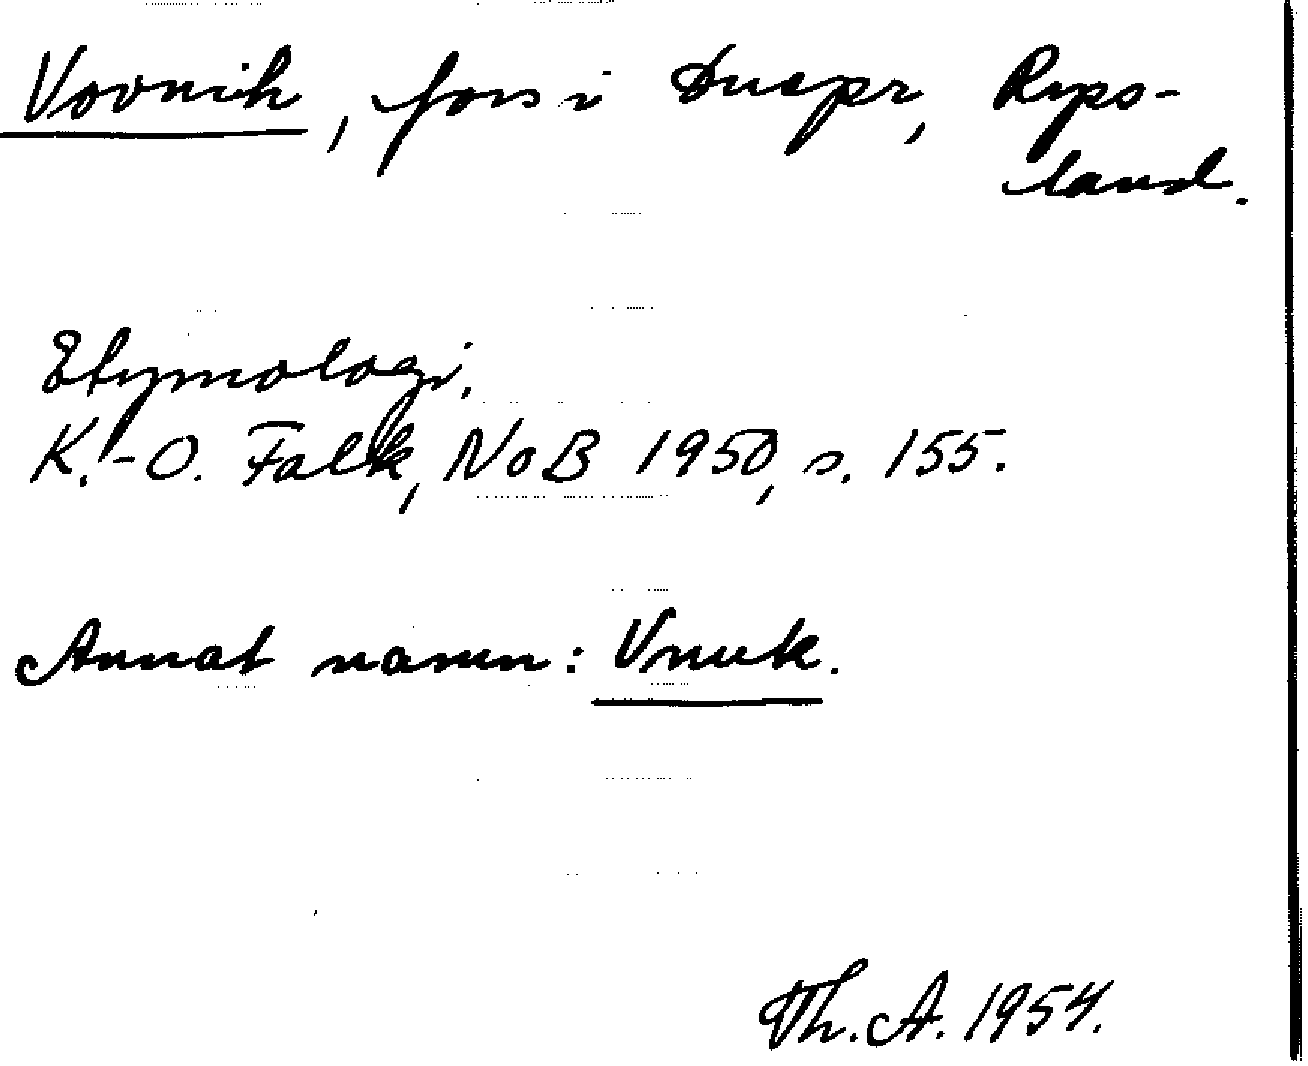 Vovnih, fors i Dnepr, Ryss-
land.
Etymologi.
K.-O. Falk, NoB 1950, s. 155.
Annat namn: Vnuk.
Th. A. 1954.